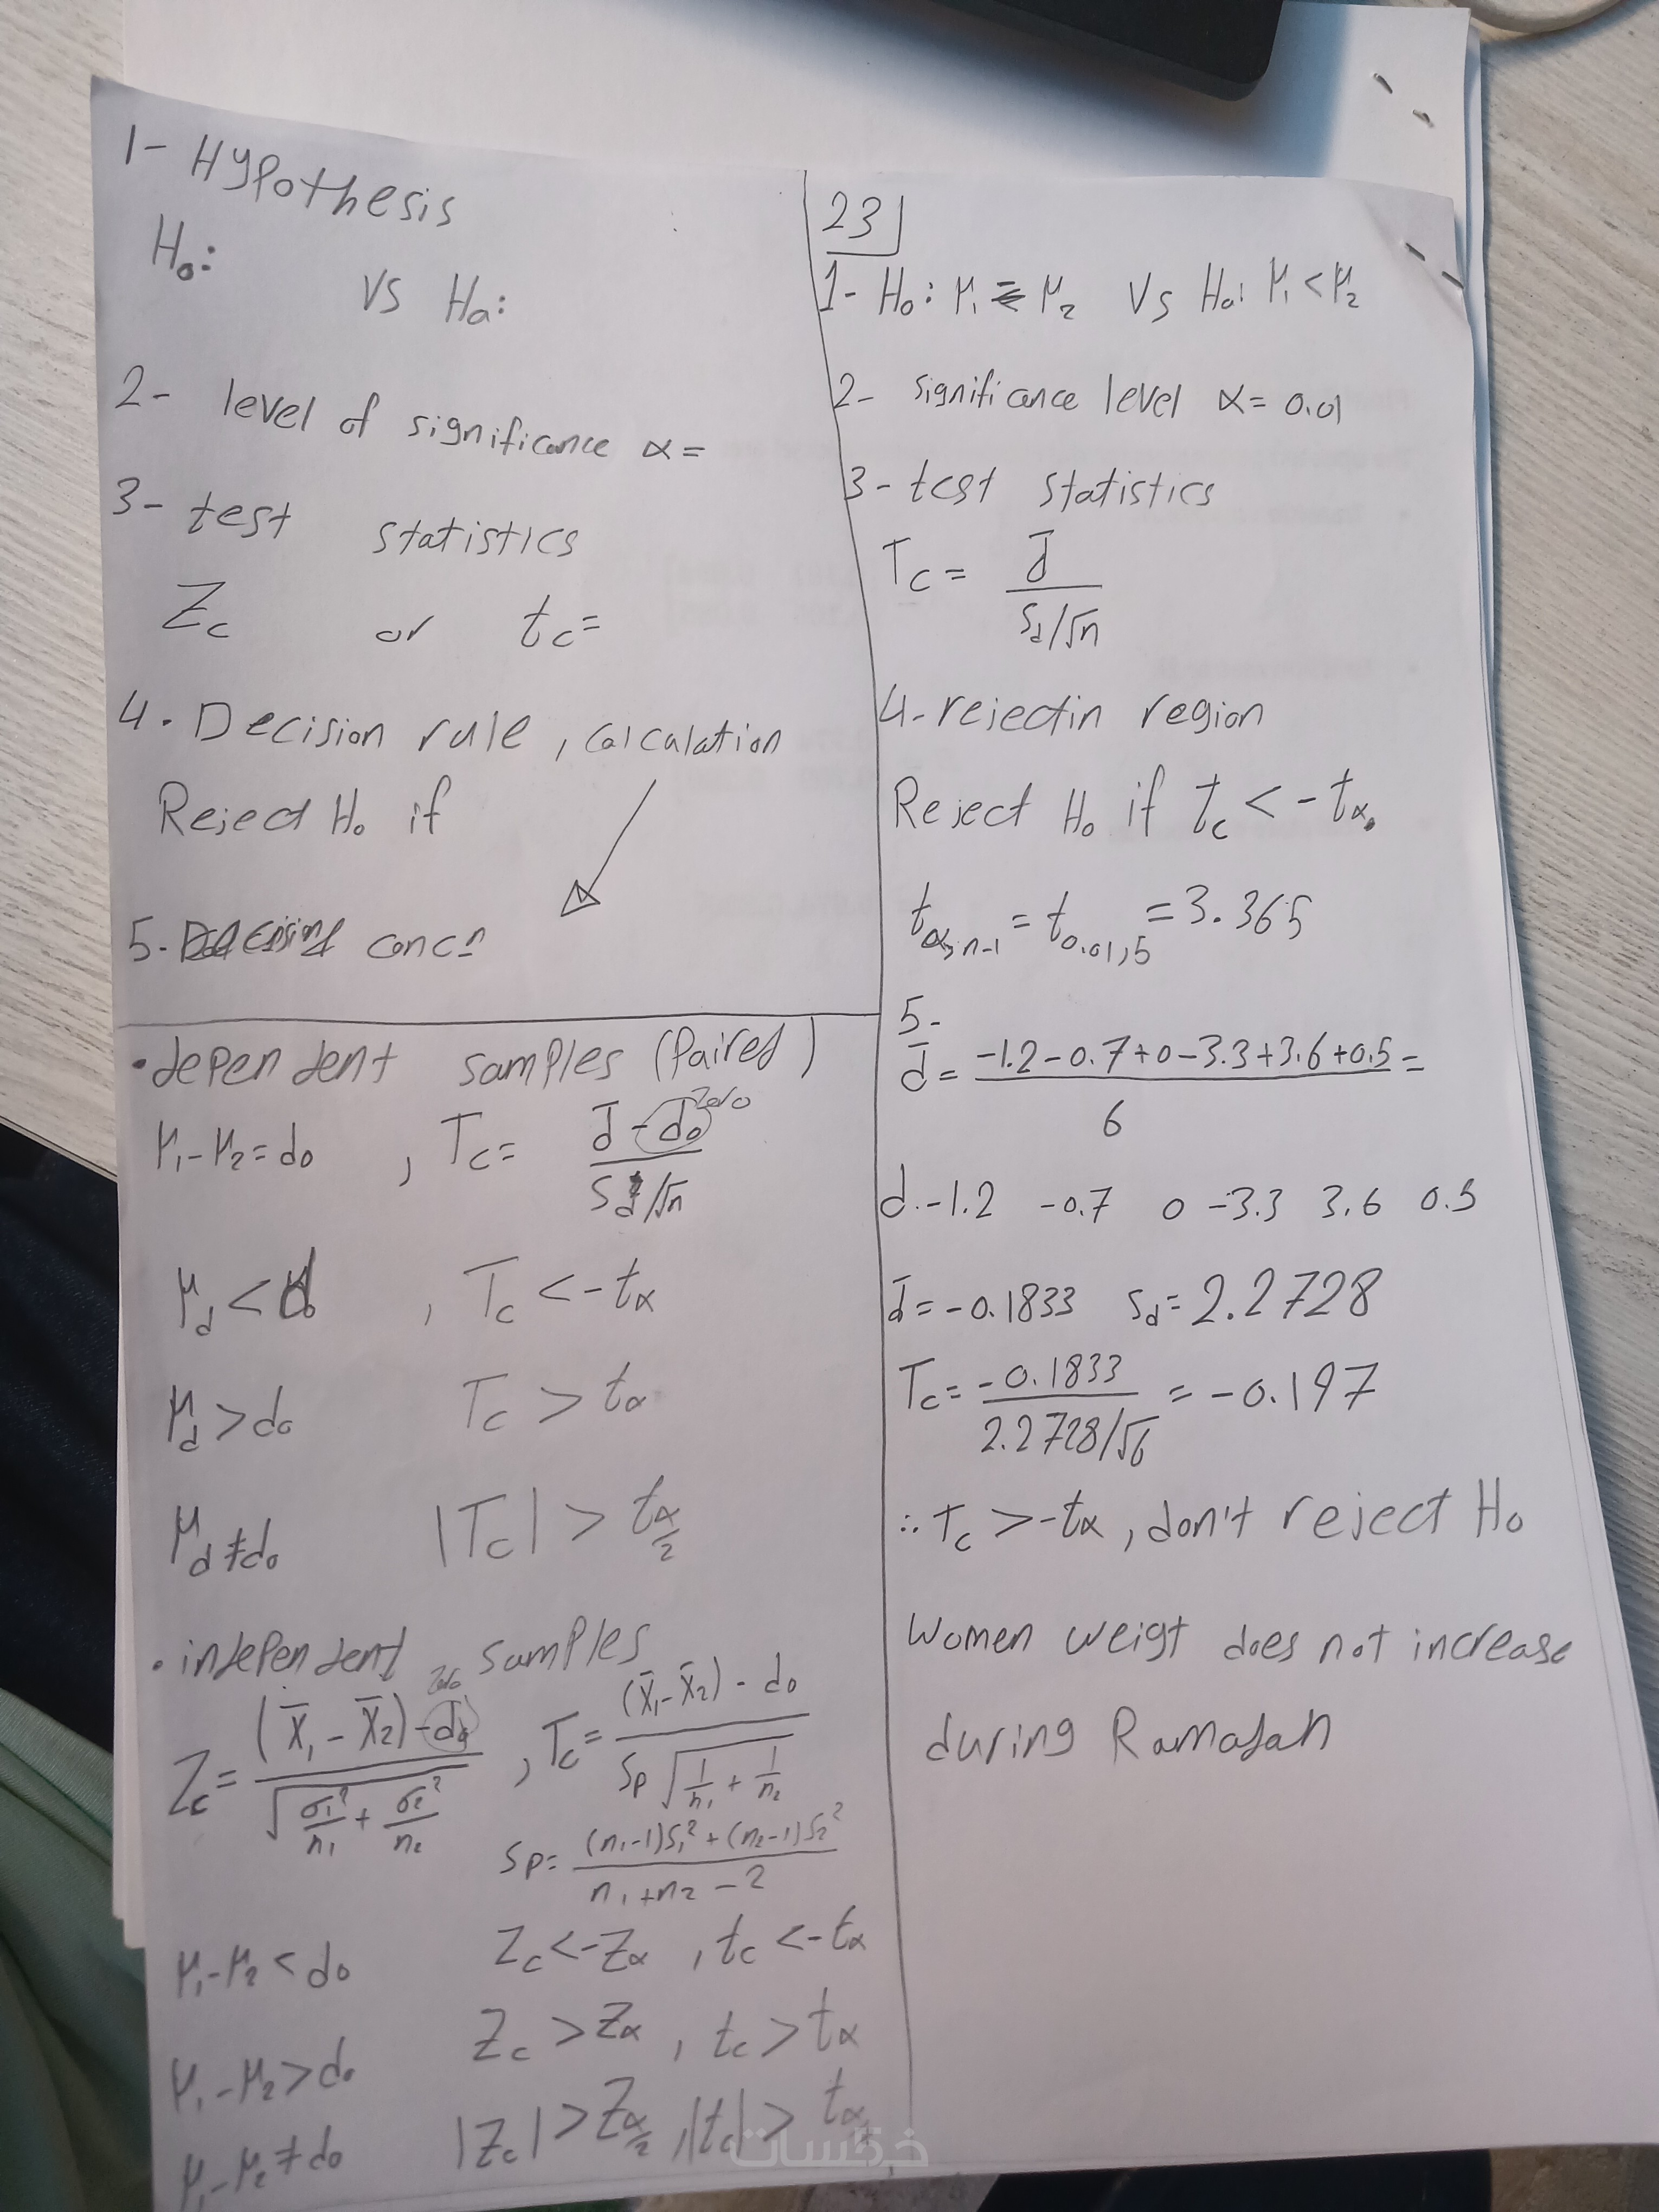 1- Hypothesis
H₀:
VS Ha:
2- level of significance α=
3- test statistics
Zc or tc=
4. Decision rule, calculation
Reject H₀ if
5.
1- dependent samples (Paired)
μ₁-μ₂=d₀ , Tc= (d̄-d₀)/(Sd/√n) zero
μd<d₀ , Tc<-tα
μd>d₀ Tc>tα
μd≠d₀ |Tc|>tα/2
• independent samples
Zc= ((x̄₁-x̄₂)-d₀)/√(σ₁²/n₁+σ₂²/n₂) , Tc= ((x̄₁-x̄₂)-d₀)/(Sp√(1/n₁+1/n₂))
Sp= ((n₁-1)S₁²+(n₂-1)S₂²)/(n₁+n₂-2)
μ₁-μ₂<d₀ Zc<-Zα , tc<-tα
μ₁-μ₂>d₀ Zc>Zα , tc>tα
μ₁-μ₂≠d₀ |Zc|>Zα/2 , |tc|>tα
23
1- H₀: μ₁ ≥ μ₂ VS Ha: μ₁<μ₂
2- significance level α=0.01
3- test statistics
Tc= d̄/(Sd/√n)
4- rejectin region
Reject H₀ if tc<-tα
tα,n-1 = t0.01,5 = 3.365
5-
d̄= (-1.2-0.7+0-3.3+3.6+0.5)/6 =
d -1.2 -0.7 0 -3.3 3.6 0.5
d̄=-0.1833 Sd=2.2728
Tc= -0.1833/(2.2728/√6) = -0.197
∴ Tc>-tα, don't reject H₀
Women weigt does not increase
during Ramadan
خمسات